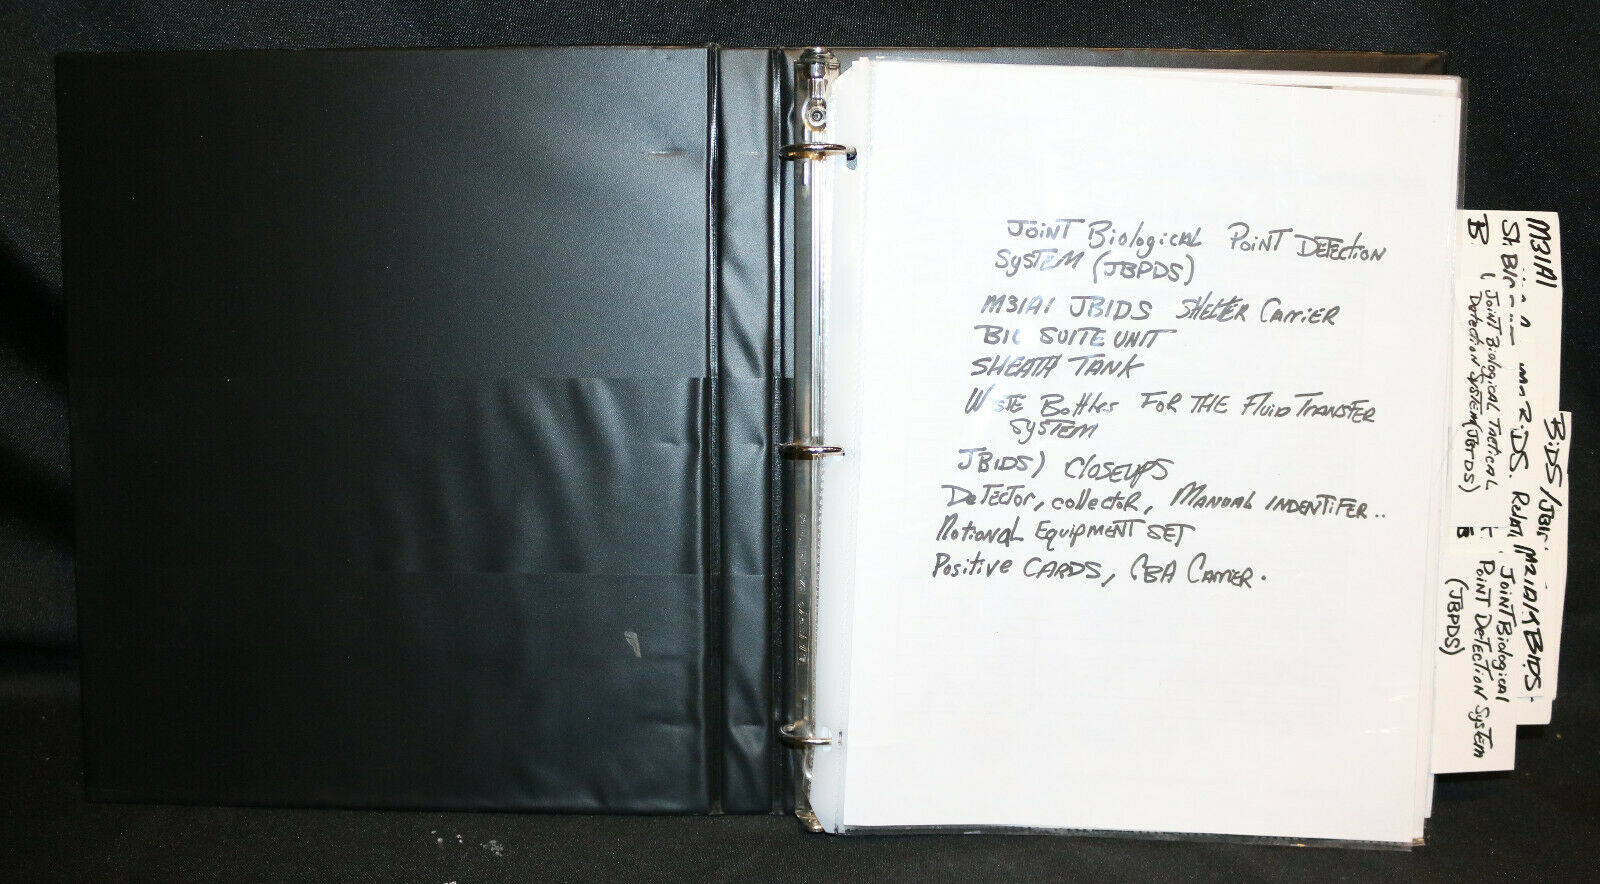 JOINT Biological POINT DETECTION
SYSTEM (JBPDS)
M31A1 JBIDS SHELTER CARRIER
SUITE UNIT
SHEATH TANK
WASTE Bottles FOR THE FLUID TRANSFER
SYSTEM
JBIDS) CLOSEUPS
DETECTOR, collector, MANUAL INDENTIFER..
NOTIONAL EQUIPMENT SET
Positive CARDS, CBA CARRIER.
M31A1
JOINT BIOLOGICAL TACTICAL
DETECTION SYSTEM (JBTDS)
BIDS/JBI
M31A1 BIDS.
JOINT Biological
POINT DETECTION SYSTEM
(JBPDS)